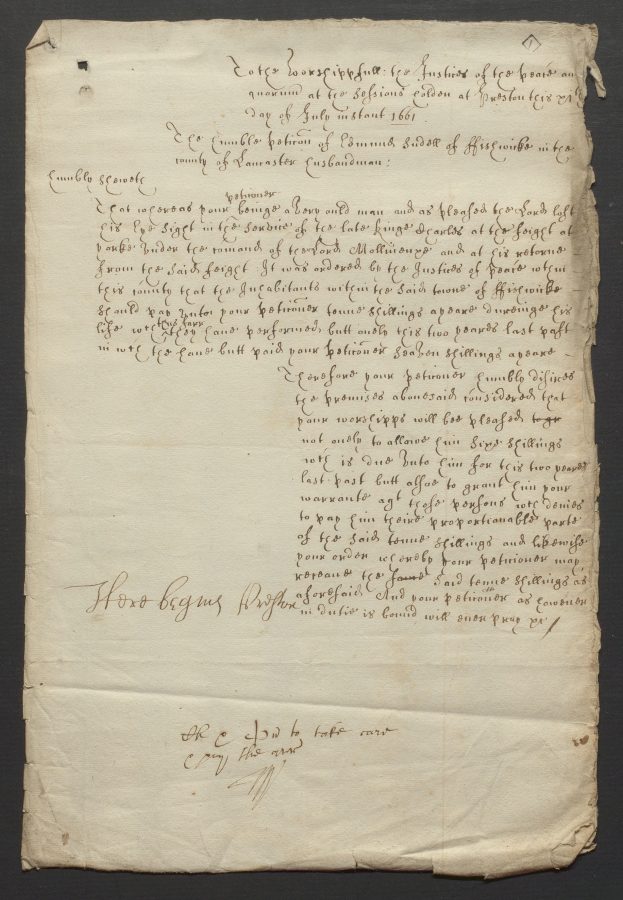 To the Worshippfull: the Justices of the peace an
quorum at the Sessions holden at Preston this xi
day of July instant 1661
The humble peticon of Edmund Sudell of ffishwicke in the
county of Lancaster husbandman:
humbly sheweth
petitioner
That whereas your beinge a very ould man and as pleased the Lord lost
his Eye Sight in the Service of the late Kinge Charles at the feight at
Yorke under the comand of the Lord Mollinenxe and at his returne
from the said feight It was ordered by the Justices of Peace within
this county that the Inhabitants within the said towne of ffishwicke
Should pay unto your peticoner tenne shillings a yeare dureinge his
life wch they have performed butt onely this two yeares last past
in wch the have butt paid your peticoner Seaven shillings a yeare
Therefore your peticoner humbly disires
the premises abovesaid considered that
your worshipps will bee pleased to gr
not onely to allowe him Sixe shillings
wch is due unto him for this two yeares
last past butt alsoe to grant him your
warrante agt those persons wch denies
to pay him theire proportionable parte
of the said tenne shillings and likewise
your order whereby your peticoner may
receave the same said tenne shillings as
aforesaid And your peticoner as however
in dutie is bound will ever pray xc
Here begins Preston
to take care
pay the arr